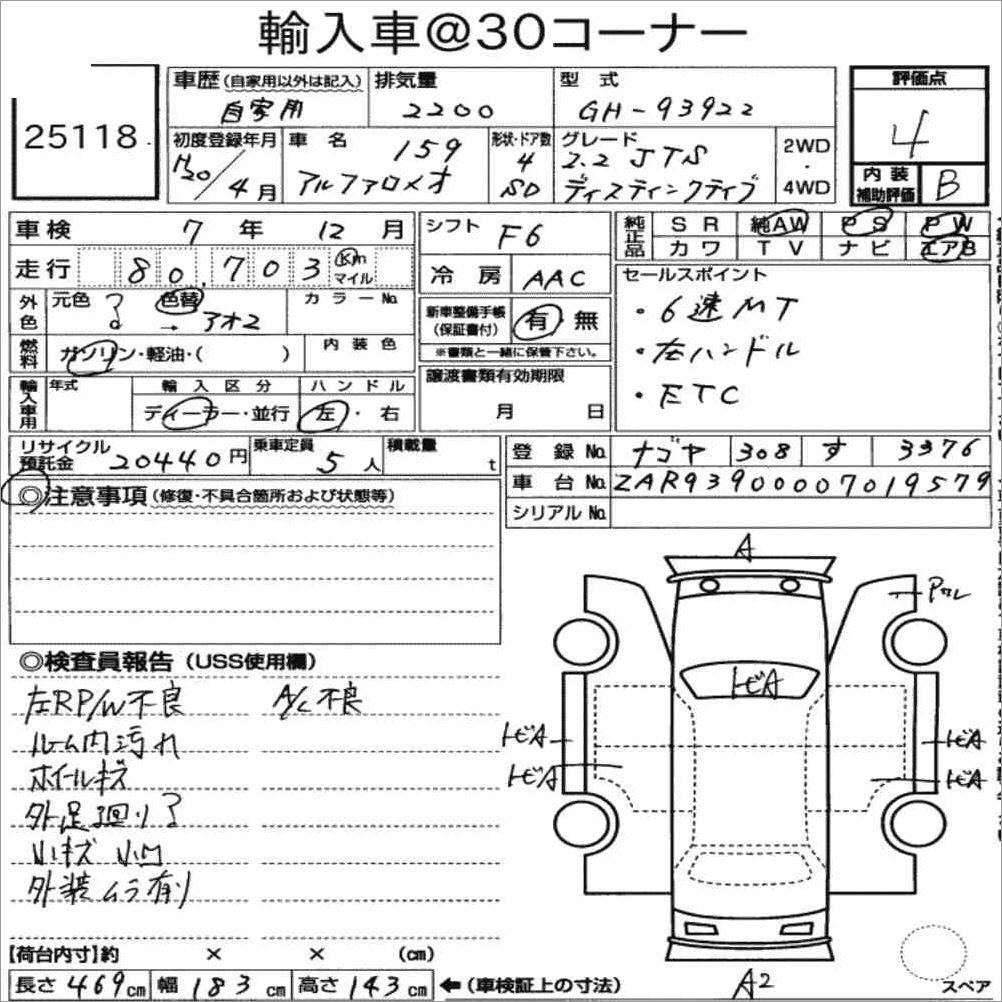 輸入車@30コーナー
25118
車歴(自家用以外は記入) 排気量 型式 評価点
自家用 2200 GH-93922 4
初度登録年月 車名 形状・ドア数 グレード 2WD・4WD
H20/4月 アルファロメオ 159 4 SD 2.2 JTS ディスティンクティブ
内装補助評価 B
車検 7年 12月 シフト F6
純正品 SR 純AW PS PW
カワ TV ナビ エアB
走行 80,703 Km マイル 冷房 AAC
セールスポイント
・6速MT
・左ハンドル
・ETC
外色 元色 ? 色替 → アオ2 カラーNo.
新車整備手帳(保証書付) 有 無
※書類と一緒に保管下さい。
燃料 ガソリン・軽油・( ) 内装色
輸入車用 年式 輸入区分 ハンドル
ディーラー・並行 左・右
譲渡書類有効期限
月 日
リサイクル預託金 20440円 乗車定員 5人 積載量 t
登録No. ナゴヤ 308 す 3376
車台No. ZAR93900007019579
シリアルNo.
◎注意事項(修復・不具合箇所および状態等)
◎検査員報告(USS使用欄)
左RP/W不良 A/C不良
ルーム内汚れ
ホイールキズ
外足廻り?
小キズ 小凹
外装ムラ有り
A
Pクレ
トビA
トビA
トビA
トビA
トビA
A2
【荷台内寸】約 × × (cm)
長さ 469cm 幅 183cm 高さ 143cm ←(車検証上の寸法)
スペア